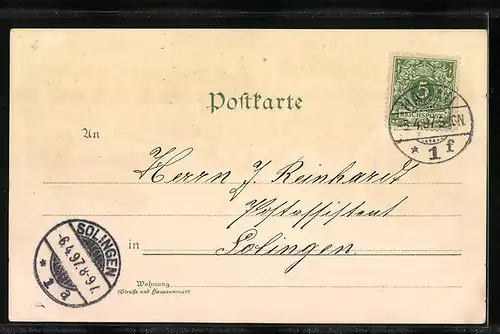 Postkarte
5
REICHSPOST
4.97.
* 1 f
An
Herrn J. Reinhardt
Postassistent
in Solingen.
SOLINGEN
-6.4.97.8-9V.
* 1 a
Wohnung
(Straße und Hausnummer)